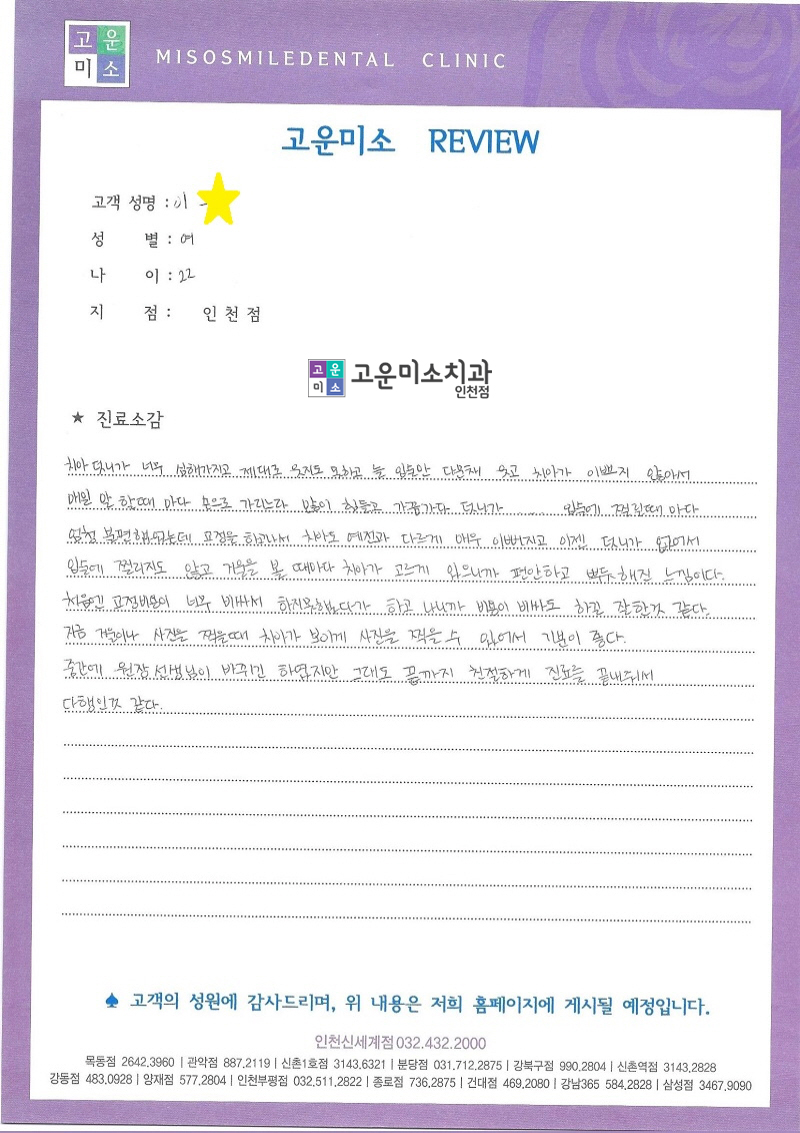 고운
미소
MISOSMILEDENTAL CLINIC
고운미소 REVIEW
고객 성명 : 이
성 별 : 여
나 이 : 22
지 점 : 인천점
고운
미소
고운미소치과
인천점
★ 진료소감
치아 덧니가 너무 심해가지고 제대로 웃지도 못하고 늘 입술안 다문채 웃고 치아가 이쁘지 않아서
매일 말 할때 마다 손으로 가리느라 많이 힘들고 가끔가다 덧니가 ........ 입술에 찔릴때 마다
엄청 불편했었는데 교정을 하고나서 치아도 예전과 다르게 매우 이뻐지고 이젠 덧니가 없어서
입술에 찔리지도 않고 거울을 볼 때마다 치아가 고르게 있으니까 편안하고 뿌듯해진 느낌이다.
처음엔 교정비용이 너무 비싸서 하지못했는데다가 하고 나니까 비용이 비싸도 하긴 잘한것 같다.
지금 거울이나 사진을 찍을때 치아가 보이게 사진을 찍을 수 있어서 기분이 좋다.
중간에 원장선생님이 바뀌긴 하였지만 그래도 끝까지 친절하게 진료를 끝내줘서
다행인것 같다.
♠ 고객의 성원에 감사드리며, 위 내용은 저희 홈페이지에 게시될 예정입니다.
인천신세계점 032.432.2000
목동점 2642.3960 | 관악점 887.2119 | 신촌1호점 3143.6321 | 분당점 031.712.2875 | 강북구점 990.2804 | 신촌역점 3143.2828
강동점 483.0928 | 양재점 577.2804 | 인천부평점 032.511.2822 | 종로점 736.2875 | 건대점 469.2080 | 강남365 584.2828 | 삼성점 3467.9090